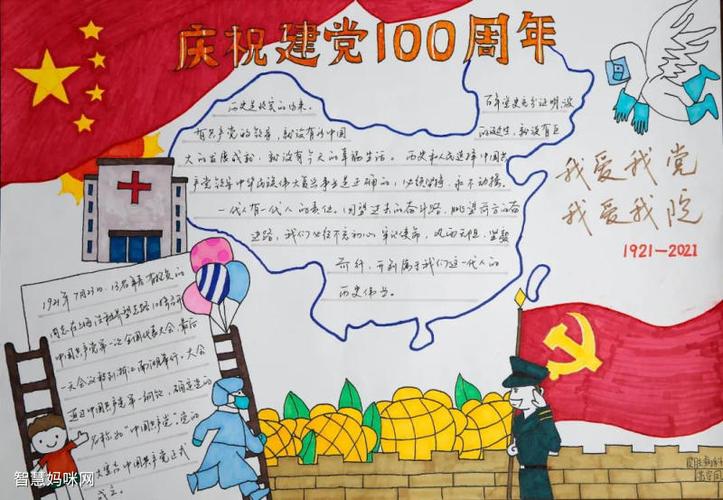 庆祝建党100周年
历史是最真的
百年党史充分证明,没
有共产党的领导,就没有新中国
的 就没有
大的发展成就,就没有今天的幸福生活。历史和人民选择中国共
产党领导中华民族伟大复兴事业是正确的,必须坚持,永不动摇。
一代人有一代人的责任,回望过去的奋斗路,眺望前方的奋
进路,我们必须不忘初心,牢记使命,风雨无阻,坚毅
前行,开创属于我们这一代人的
历史伟业。
我爱我党
我爱我院
1921-2021
1921年7月23日,13名
同志在上海法租界望志路106号召开
中国共产党第一次全国代表大会,最后
一天会议移到浙江南湖举行。大会
通过中国共产党第一个 ,确定党的
名称为"中国共产党"。党的
大宣告中国共产党正式
成立。
智慧妈咪网